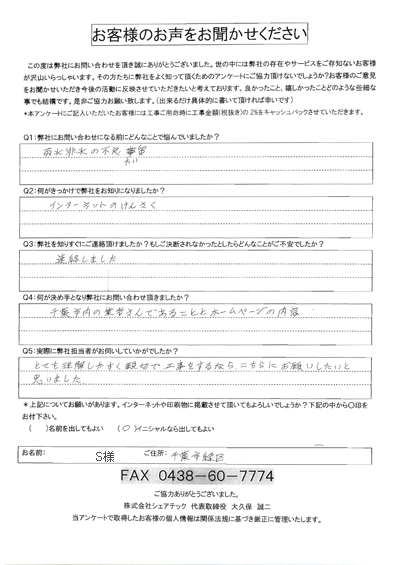 お客様のお声をお聞かせください
この度は弊社にお問い合わせを頂き誠にありがとうございました。世の中には弊社の存在やサービスをご存知ないお客様
が沢山いらっしゃいます。その方たちに弊社をよく知って頂くためのアンケートにご協力頂けないでしょうか?お客様のご意見
をお聞かせいただき今後の活動に反映させていただきたいと考えております。良かったこと、嬉しかったことどのような些細な
事でも結構です。是非ご協力お願い致します。（出来るだけ具体的に書いて頂ければ幸いです）
*本アンケートにご記入いただいたお客様には工事ご用命時に工事金額(税抜き)の 2%をキャッシュバックさせていただきます。
Q1:弊社にお問い合わせになる前にどんなことで悩んでいましたか?
雨水排水の不良
Q2:何がきっかけで弊社をお知りになりましたか?
インターネットのけんさく
Q3:弊社を知りすぐにご連絡頂けましたか?もしご決断されなかったとしたらどんなことがご不安でしたか?
連絡しました
Q4:何が決め手となり弊社にお問い合わせ頂きましたか?
千葉市内の業者さんであることとホームページの内容
Q5:実際に弊社担当者がお伺いしていかがでしたか?
とても理解しやすく親切で工事をするなら、こちらにお願いしたいと
思いました
*上記についてお願いがあります。インターネットや印刷物に掲載させて頂いてもよろしいでしょうか?下記の中から〇印を
お付下さい。
（　）名前を出してもよい （○）イニシャルなら出してもよい
お名前: S様 ご住所: 千葉市緑区
FAX 0438-60-7774
ご協力ありがとうございました。
株式会社シェアテック 代表取締役 大久保 誠二
当アンケートで取得したお客様の個人情報は関係法規に基づき厳正に管理いたします。